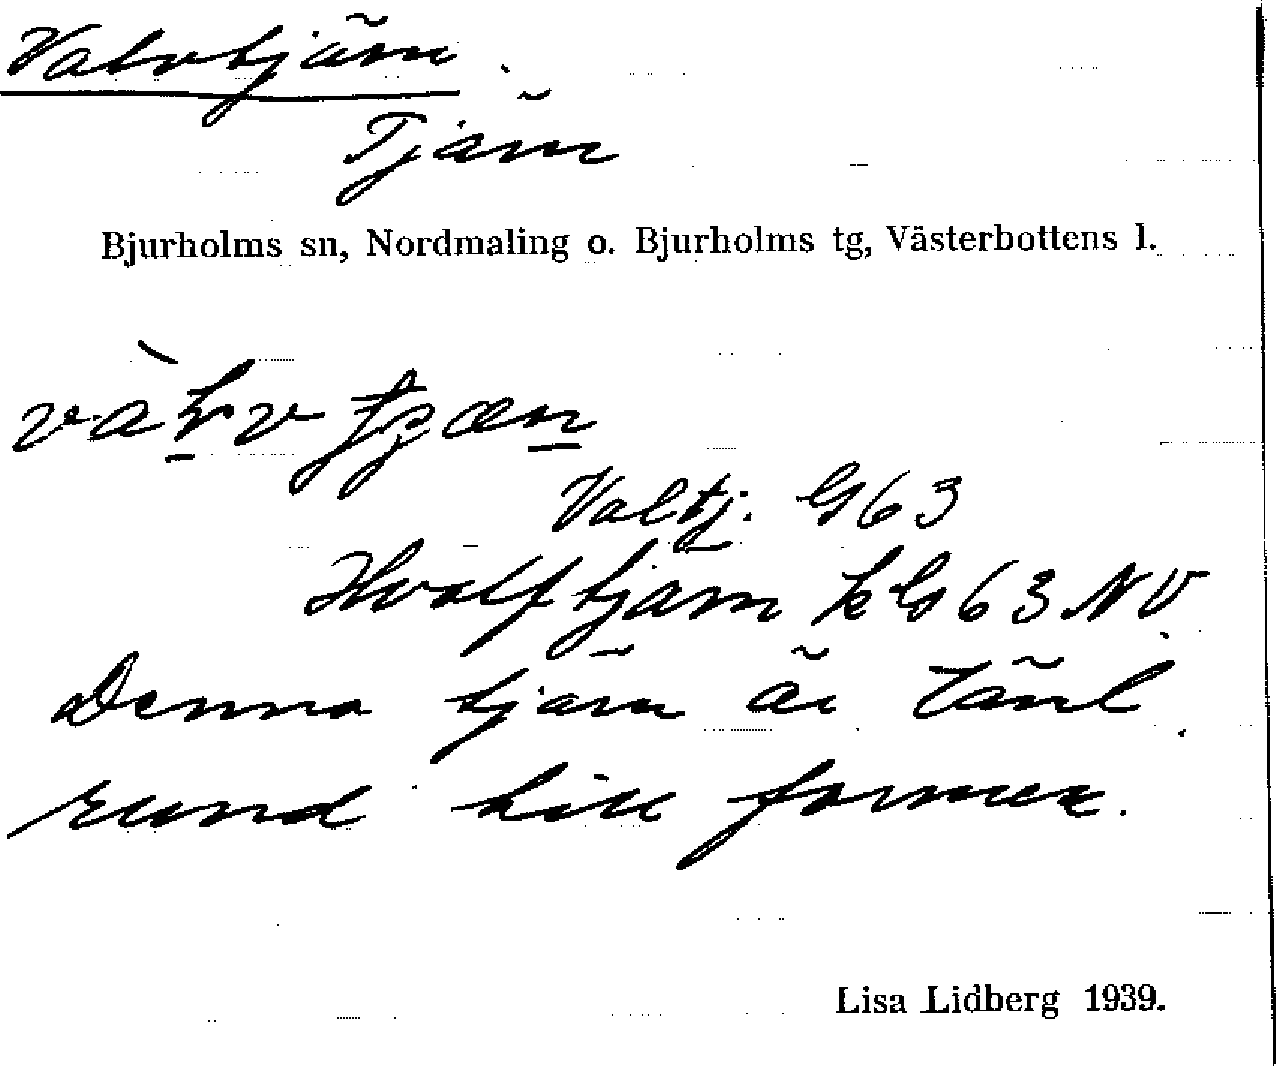 Valvtjärn.
Tjärn
Bjurholms sn, Nordmaling o. Bjurholms tg, Västerbottens l.
Valtj. G63
Hvalftjärn kG63NV.
Denna tjärn är tänl.
rund till formen.
Lisa Lidberg 1939.